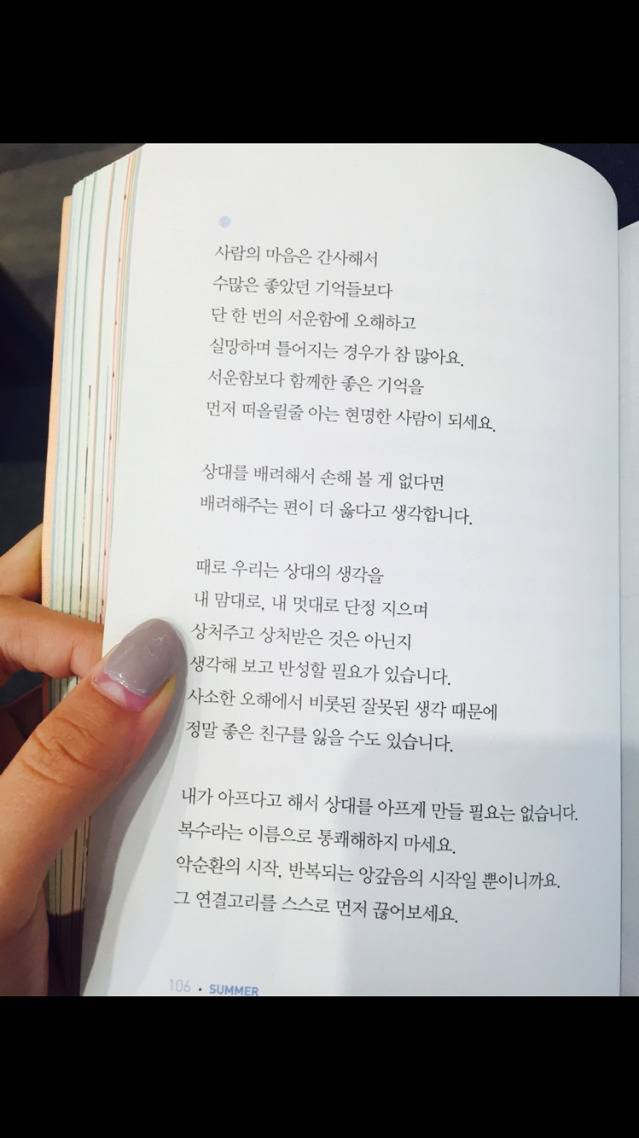 사람의 마음은 간사해서
수많은 좋았던 기억들보다
단 한 번의 서운함에 오해하고
실망하며 틀어지는 경우가 참 많아요.
서운함보다 함께한 좋은 기억을
먼저 떠올릴줄 아는 현명한 사람이 되세요.
상대를 배려해서 손해 볼 게 없다면
배려해주는 편이 더 옳다고 생각합니다.
때로 우리는 상대의 생각을
내 맘대로, 내 멋대로 단정 지으며
상처주고 상처받은 것은 아닌지
생각해 보고 반성할 필요가 있습니다.
사소한 오해에서 비롯된 잘못된 생각 때문에
정말 좋은 친구를 잃을 수도 있습니다.
내가 아프다고 해서 상대를 아프게 만들 필요는 없습니다.
복수라는 이름으로 통쾌해하지 마세요.
악순환의 시작, 반복되는 앙갚음의 시작일 뿐이니까요.
그 연결고리를 스스로 먼저 끊어보세요.
106 • SUMMER